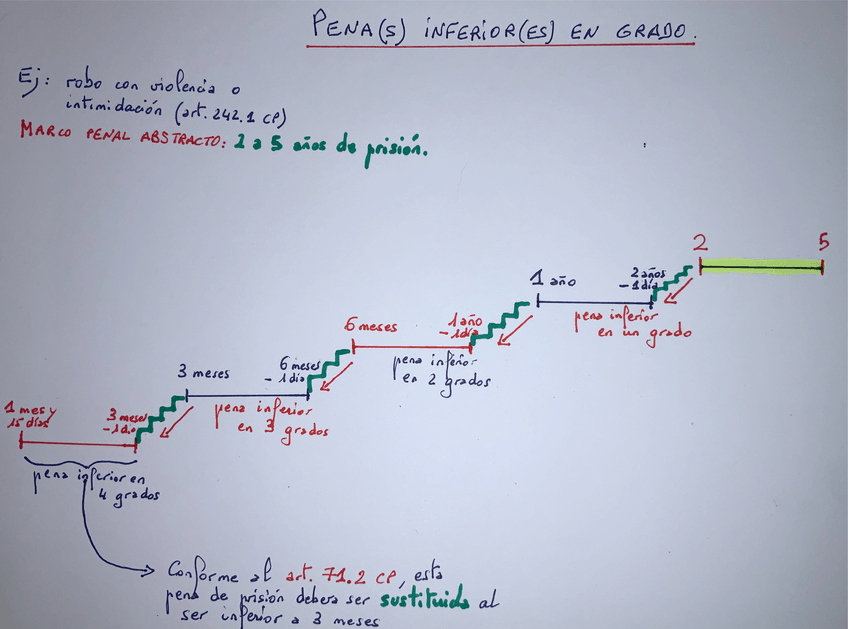 PENA(S) INFERIOR(ES) EN GRADO.
Ej: robo con violencia o
intimidación (art. 242.1 CP)
MARCO PENAL ABSTRACTO: 2 a 5 años de prisión.
2
5
1 año
2 años
- 1 día
pena inferior
en un grado
6 meses
1 año
- 1 día
pena inferior
en 2 grados
3 meses
6 meses
- 1 día
pena inferior
en 3 grados
1 mes y
15 días
3 meses
- 1 día
pena inferior en
4 grados
Conforme al art. 71.2 CP, esta
pena de prisión deberá ser sustituida al
ser inferior a 3 meses